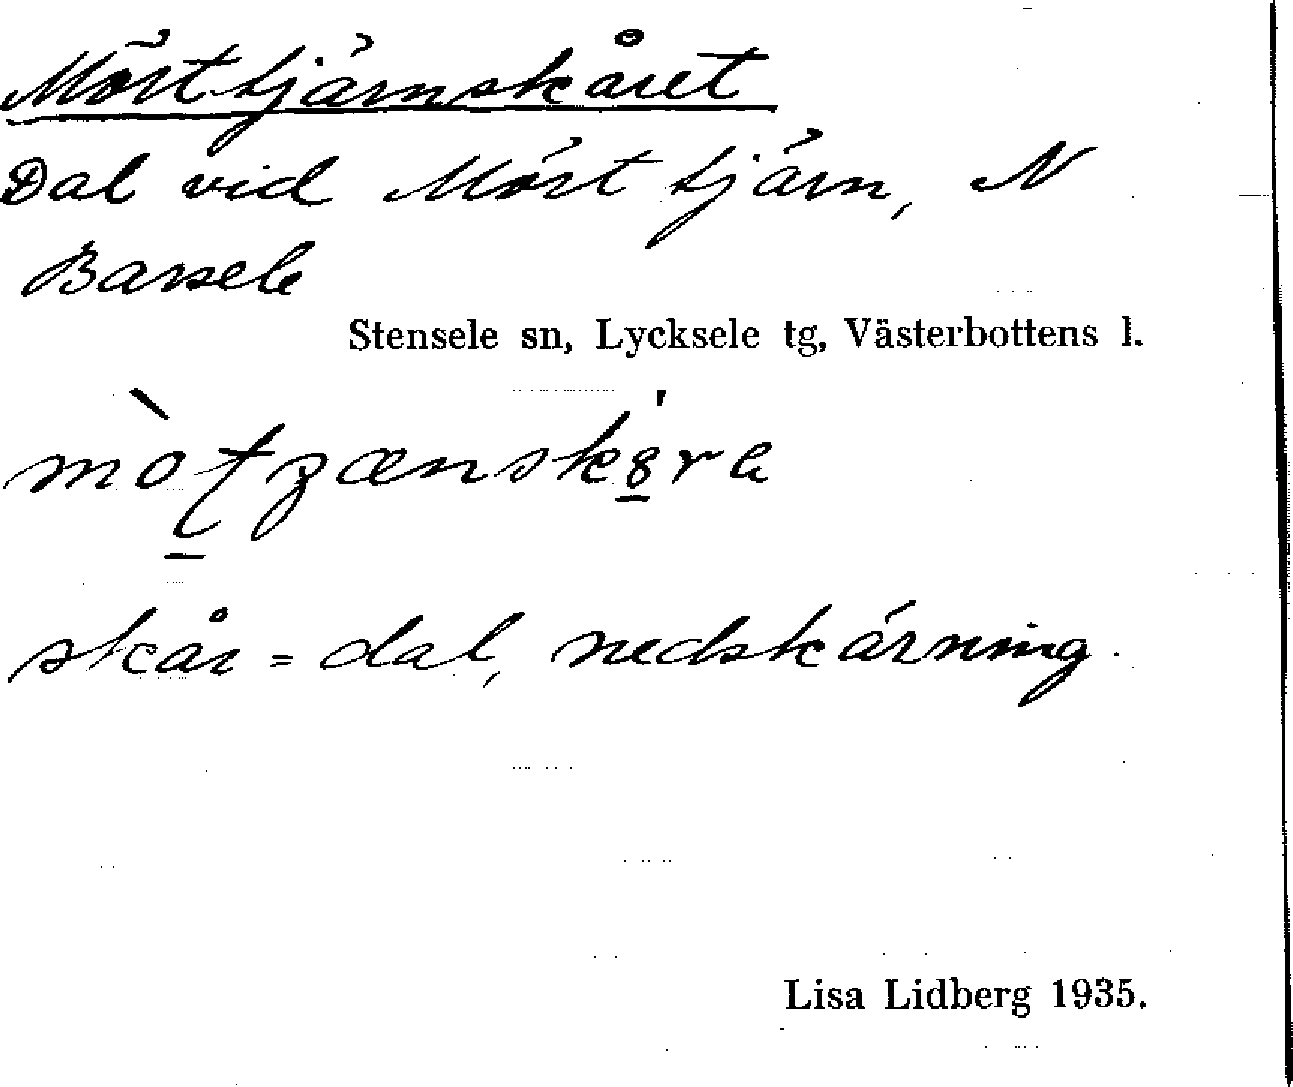 Mörttjärnskåret
Dal vid Mörttjärn, N
Barsele
Stensele sn, Lycksele tg, Västerbottens l.
skår = dal, nedskärning.
Lisa Lidberg 1935.